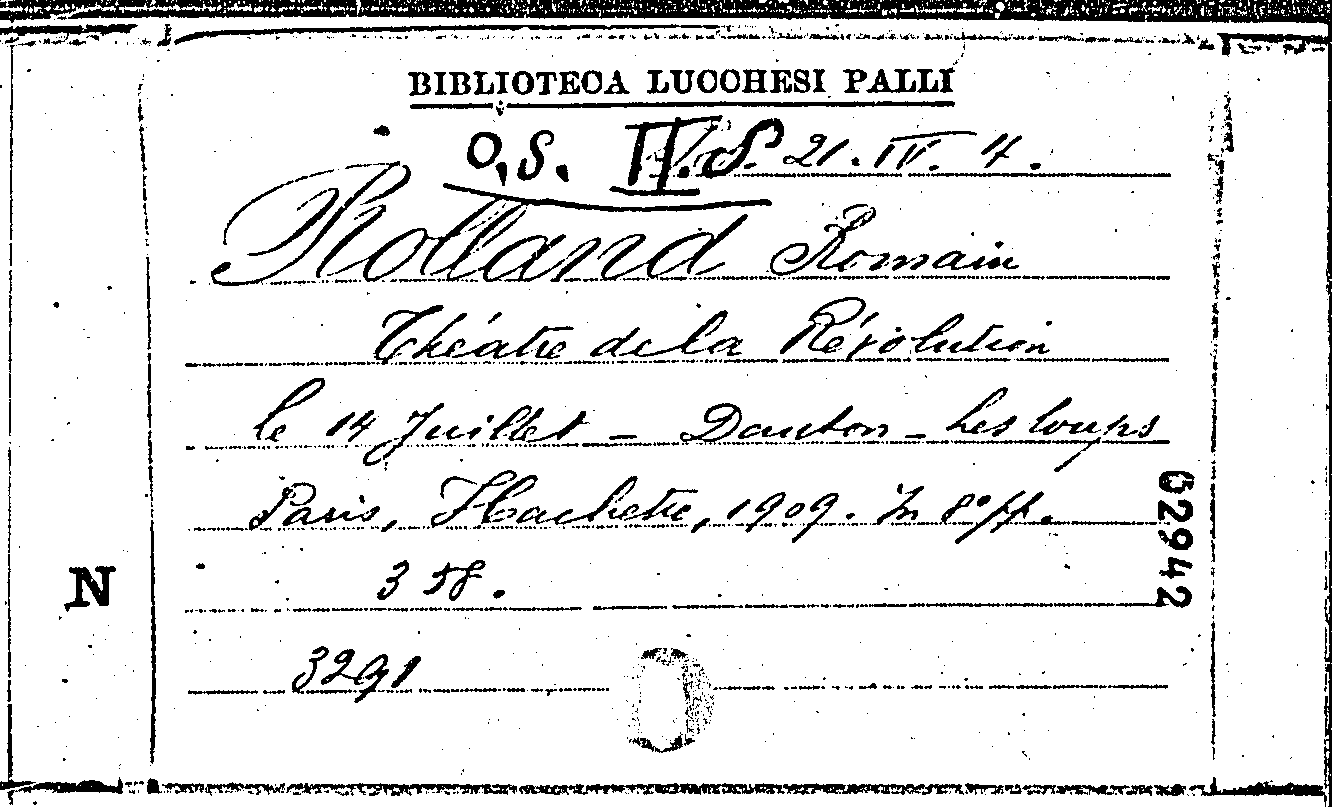 BIBLIOTECA LUCCHESI PALLI
O.S. IV. S. 21. IV. 4.
Rolland Romain
Théâtre de la Révolution
le 14 Juillet - Danton - Les loups
Paris, Hachette, 1909. In 8° pp.
358.
3291
N
62942